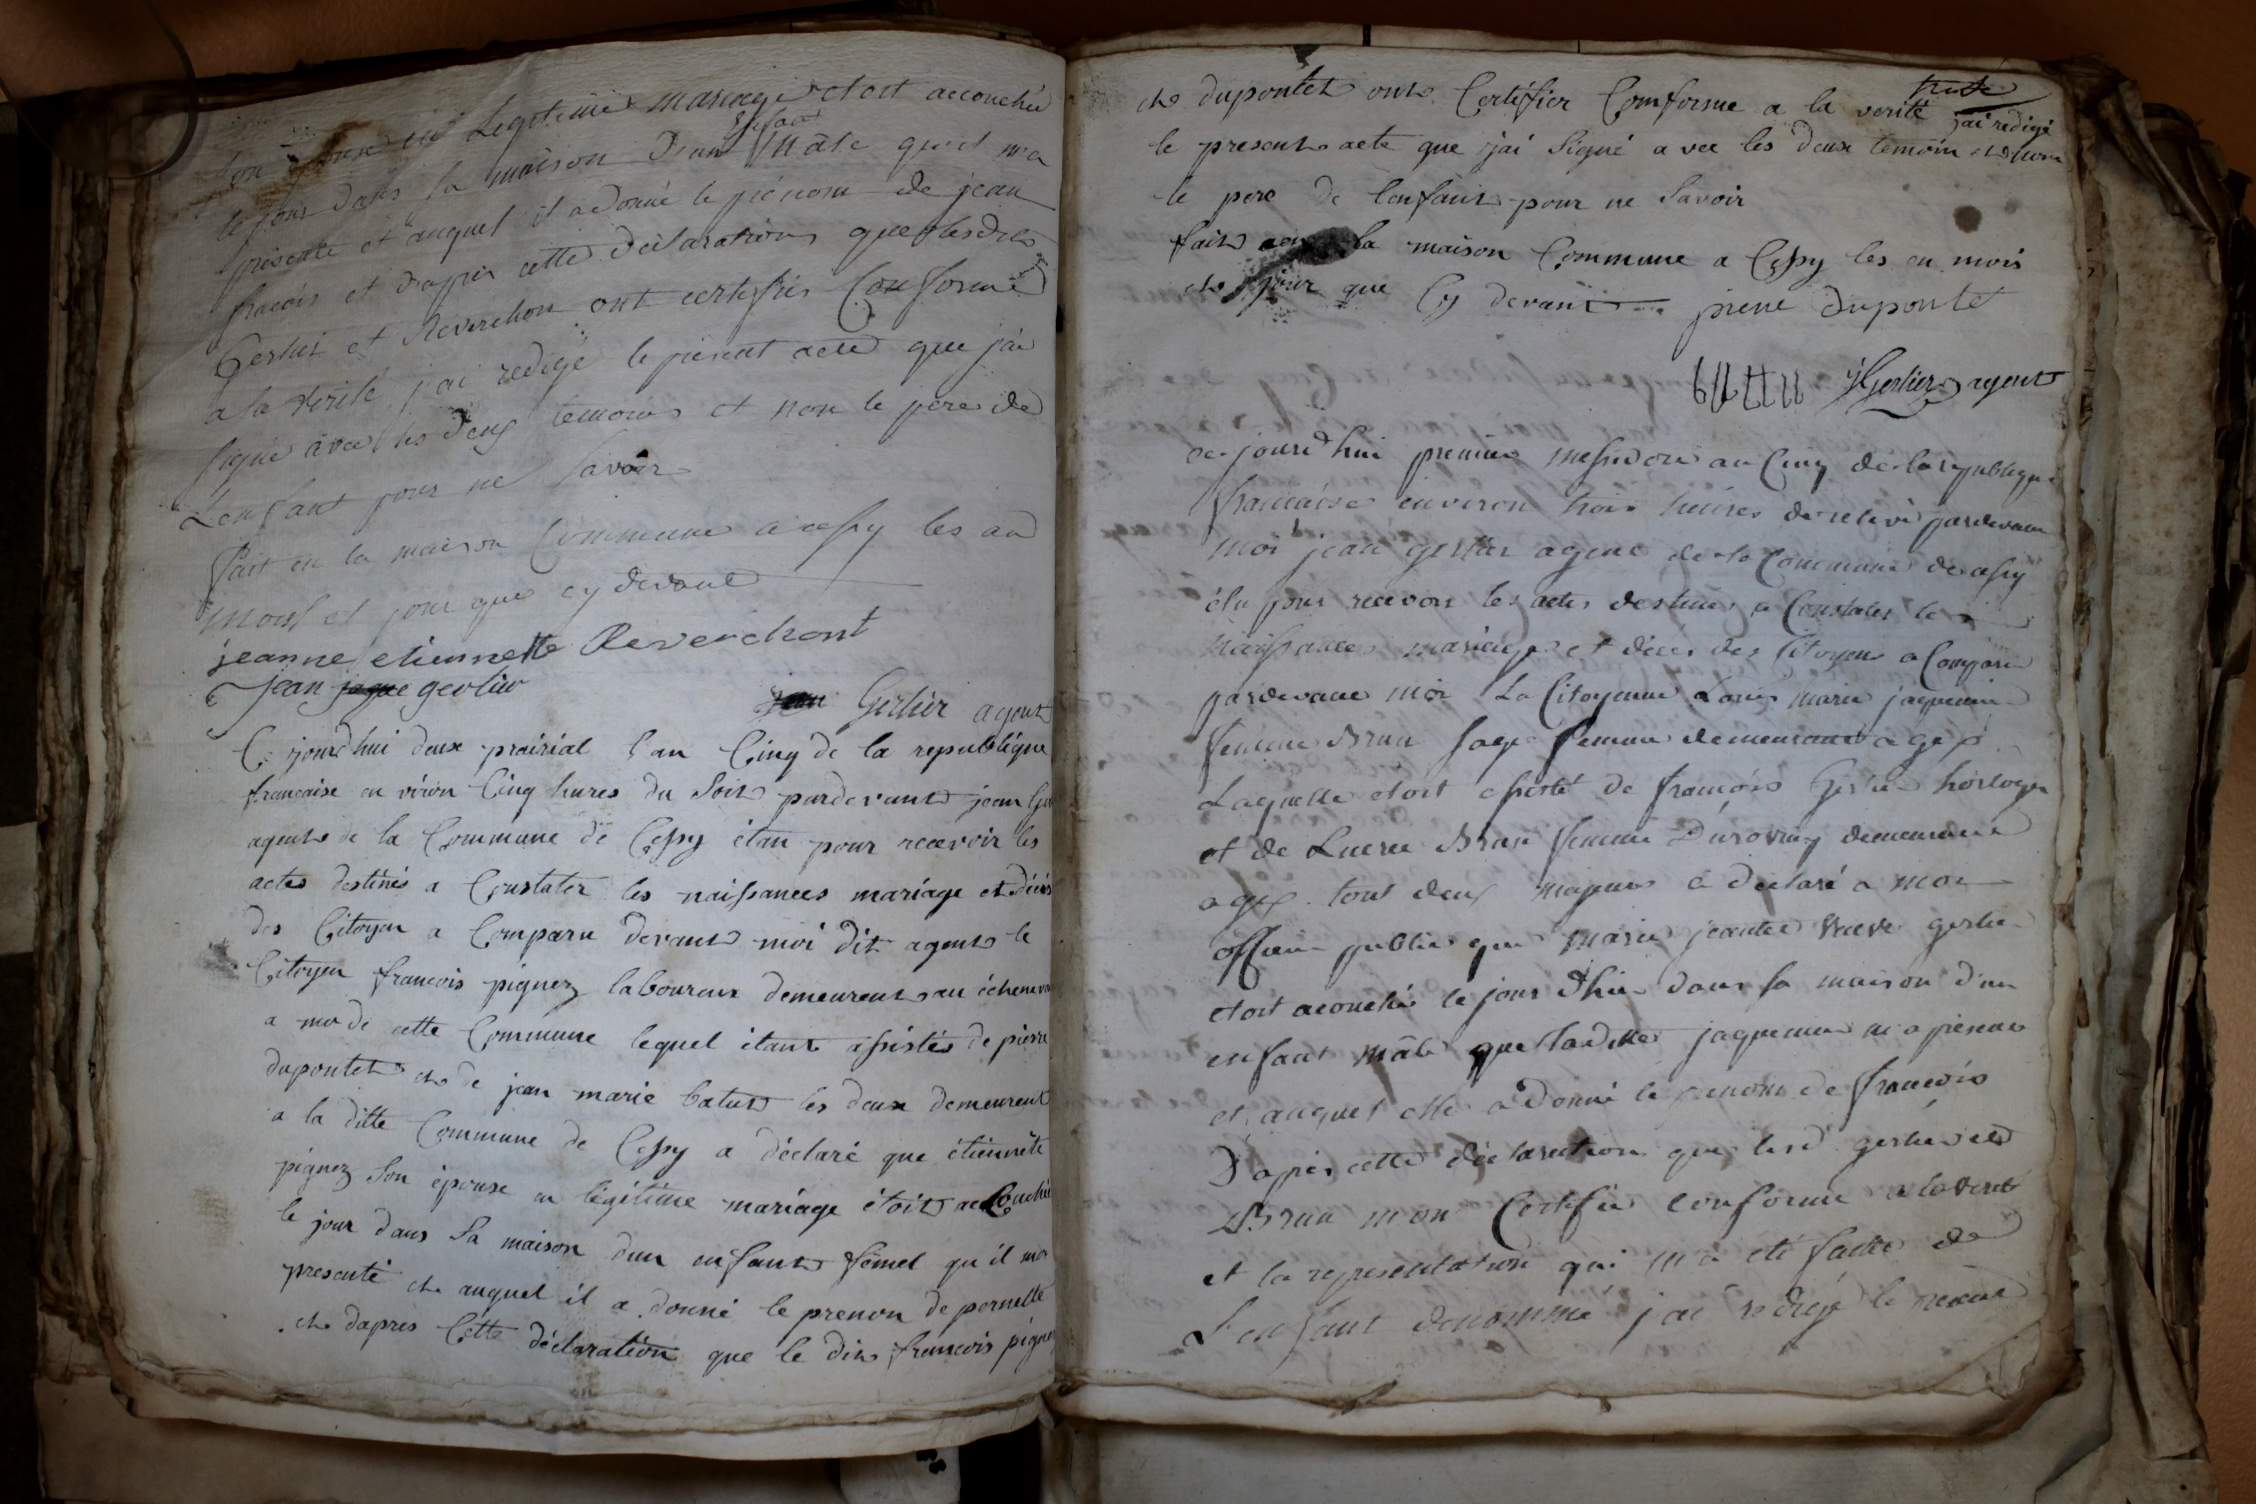 en Legitime mariage etoit accouchée
le jour dans sa maison d'un Enfant Mâle qu'il m'a
présenté et auquel il a donné le prénom de jean
francois et d'apres cette déclaration que lesdits
Gerlier et Reverchon ont certifier Conforme
a la verité j'ai redigé le présent acte que j'ai
signé avec les deux temoins et non le pere de
L'enfant pour ne savoir
fait en la maison Commune a cessy les an
mois et jour que cy devant
jeanne etiennette Reverchont
jean jaque gerlier
jean Gerlier agent
Ce jourd'hui deux prairial l'an Cinq de la republique
francaise en viron Cinq hures du Soir pardevant jean Ger
agent de la Commune de Cessy étan pour recevoir les
actes destinés a Constater les naissances mariage et décès
des Citoyen a Comparu devant moi dit agent le
Citoyen francois pignez laboureur demeurent au
a de cette Commune lequel étant assistés de pierre
dupontet et de jean marie batut les deux demeurent
a la ditte Commune de Cessy a déclaré que étiennéte
pignez Son épouse en légitime mariage étoit accouchée
le jour dans Sa maison dun enfant fémel qu'il ma
presenté et auquel il a donné le prenon de pernette
et dapres Cette déclaration que le dit francois pignez
et dupontet ont Certifier Comforme a la verité j'ai redigé
le present acte que j'ai Signé avec les deux temoin et non
le pere de lenfant pour ne Savoir
fait en la maison Commune a Cessy les en mois
et jour que Cy devant pierre duponte
JGerlier agent
ce jourd'hui premier messidor an Cinq de la republique
francaise environ trois heures de relevé pardevant
moi jean gerlier agent de la Commune de cessy
élu pour recevoir les actes destinés a Constater les
naissances mariage et décès des Citoyens a Comparu
pardevant moi La Citoyenne Louis marie jaquemin
femme Brun sage femme demeurant a gex
Laquelle etoit assisté de francois Gerlier horloger
et de Lucree Brun femme demeurant
a gex tout deux majeurs a déclaré a moi
officier public que marie veuve gerlier
etoit acouchée le jour d'hier dans sa maison d'un
enfant mâle que laditte jaquemin m'a présenté
et auquel elle a donné le prenom de francois
D'après cette déclaration que lesd gerlier et
Brun m'ont Certifié conforme a la verité
et la representation qui m'a été faitte de
L'enfant denommé j'ai redigé le présent